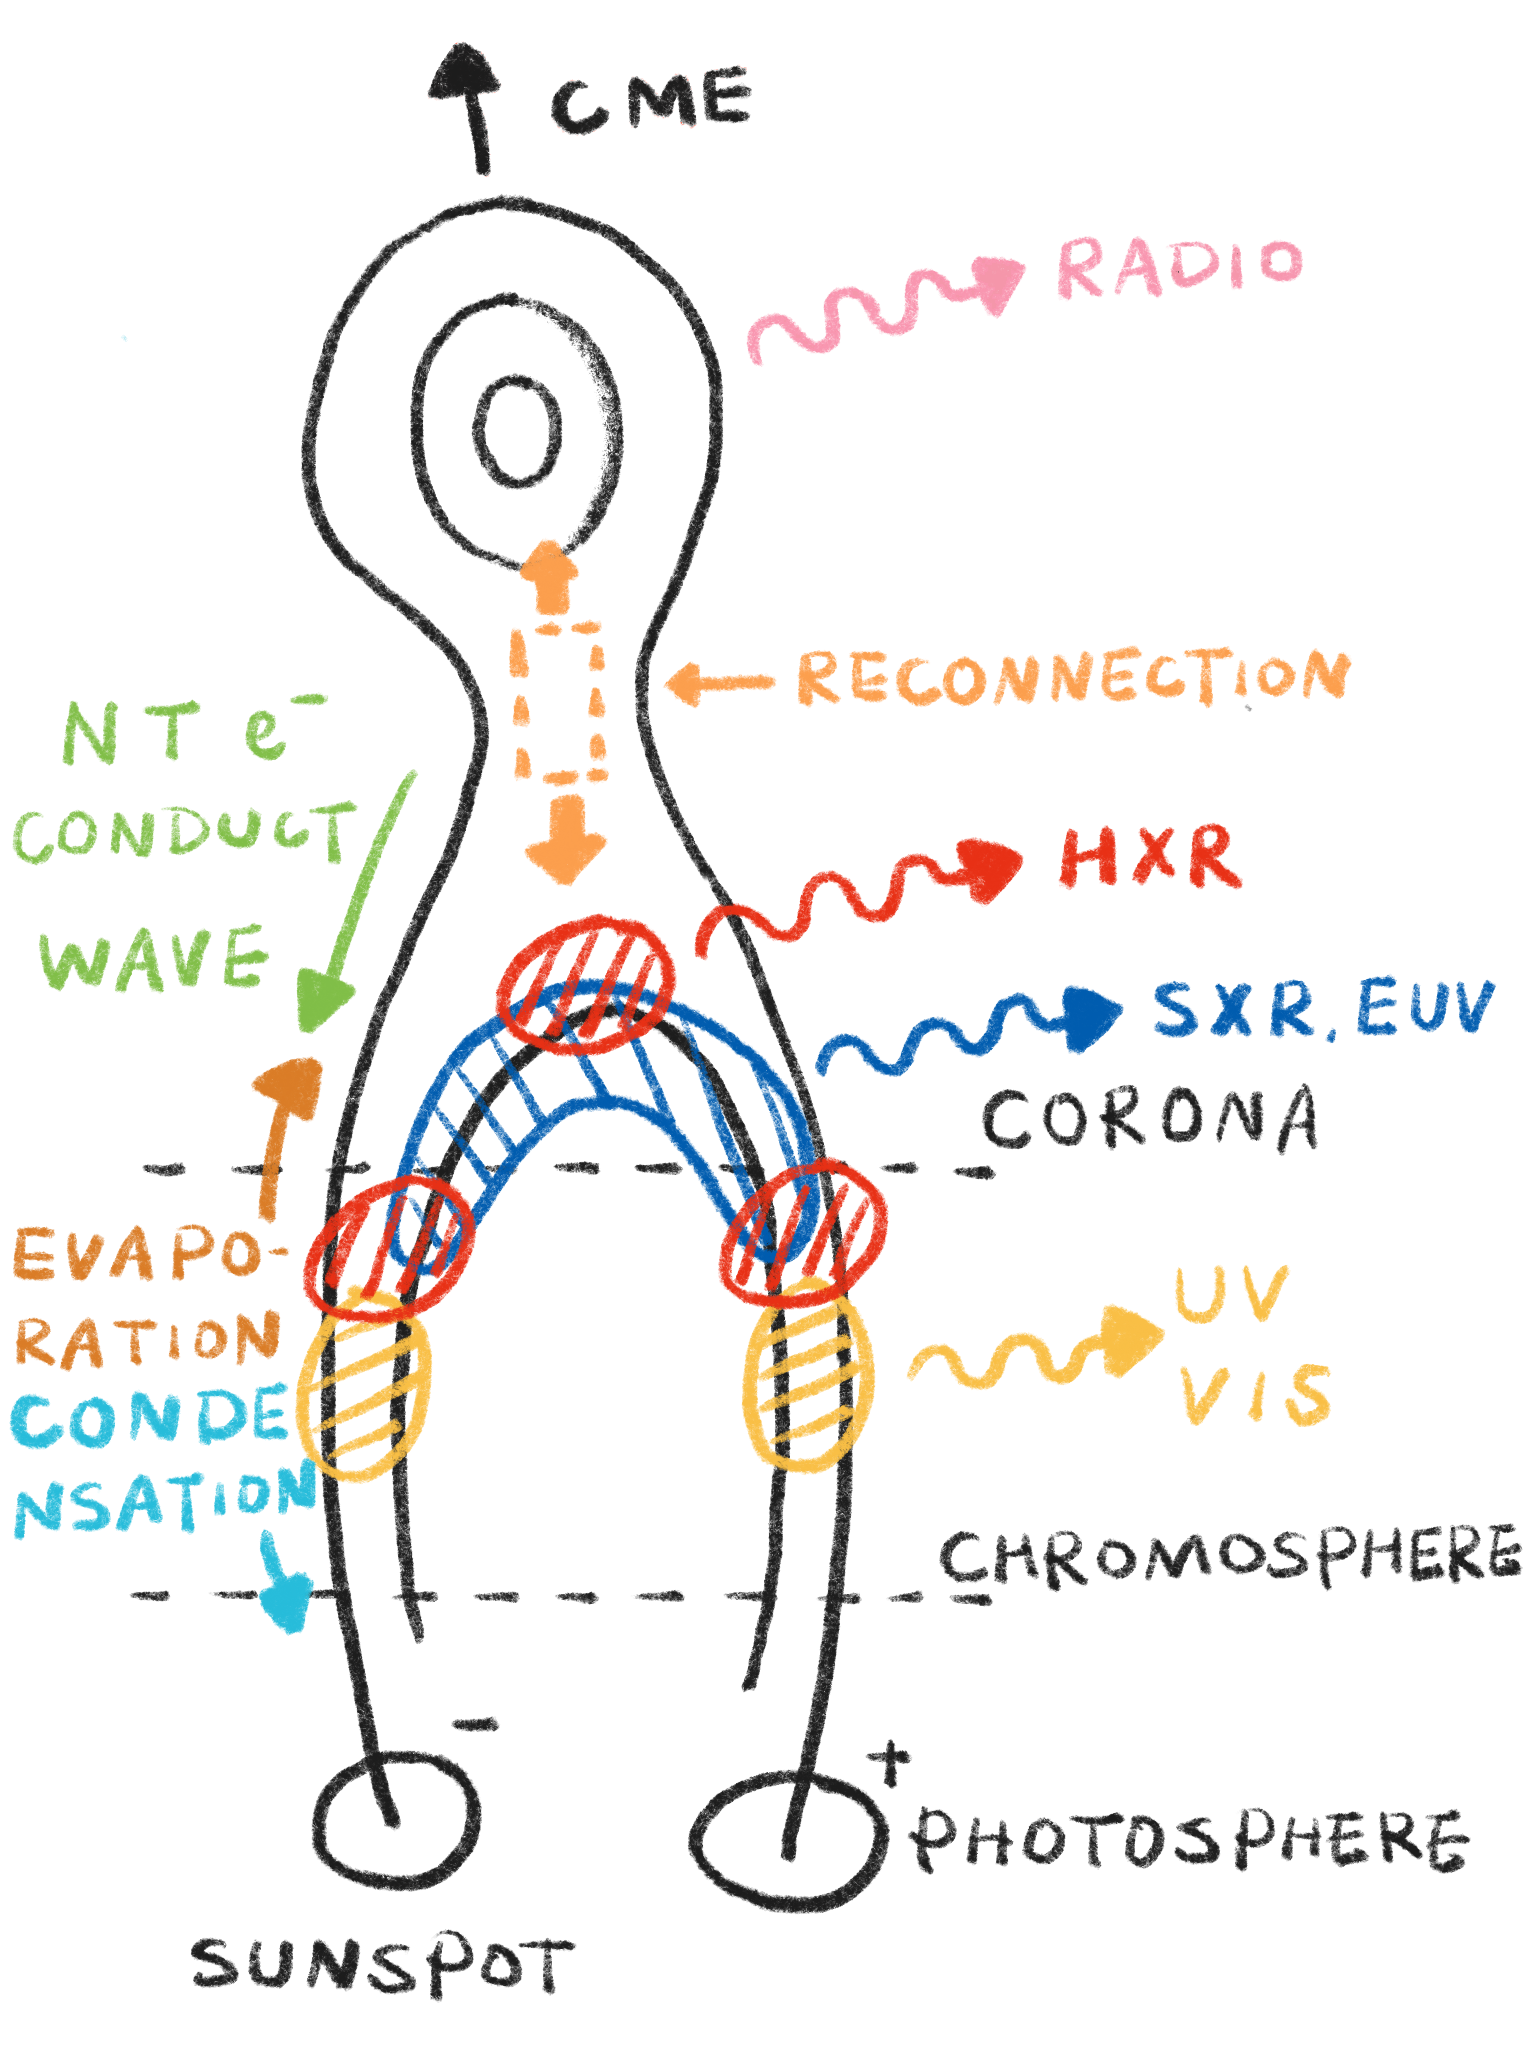 CME
RADIO
RECONNECTION
NT e⁻
CONDUCT
WAVE
HXR
SXR, EUV
CORONA
EVAPO-
RATION
CONDE
NSATION
UV
VIS
CHROMOSPHERE
-
+
PHOTOSPHERE
SUNSPOT